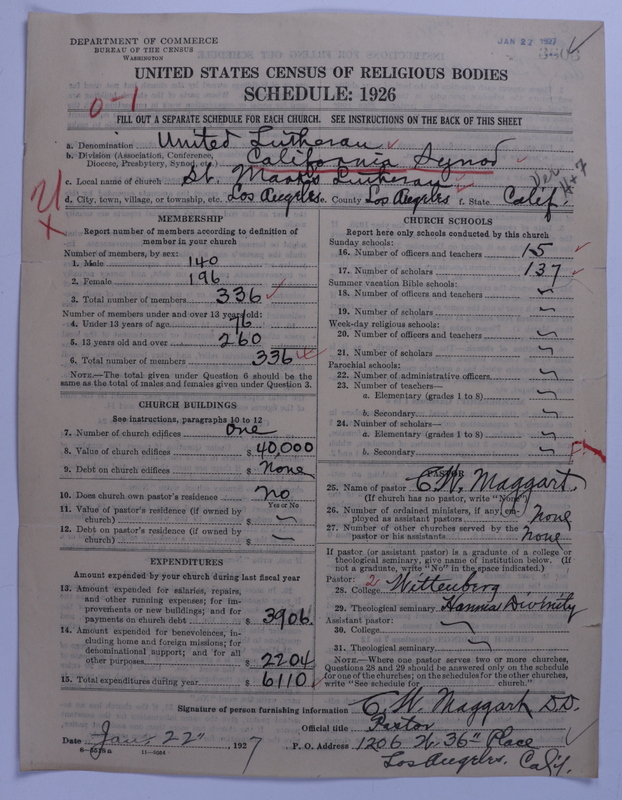 DEPARTMENT OF COMMERCE
BUREAU OF THE CENSUS
WASHINGTON
JAN 22 1927
UNITED STATES CENSUS OF RELIGIOUS BODIES
SCHEDULE: 1926
0-1
FILL OUT A SEPARATE SCHEDULE FOR EACH CHURCH. SEE INSTRUCTIONS ON THE BACK OF THIS SHEET
a. Denomination United Lutheran
b. Division (Association, Conference, Diocese, Presbytery, Synod, etc.) California Synod
c. Local name of church St. Marks Lutheran
d. City, town, village, or township, etc. Los Angeles e. County Los Angeles f. State Calif.
MEMBERSHIP
Report number of members according to definition of
member in your church
Number of members, by sex:
1. Male 140
2. Female 196
3. Total number of members 336
Number of members under and over 13 years old:
4. Under 13 years of age 76
5. 13 years old and over 260
6. Total number of members 336
NOTE.—The total given under Question 6 should be the
same as the total of males and females given under Question 3.
CHURCH BUILDINGS
See instructions, paragraphs 10 to 12
7. Number of church edifices One
8. Value of church edifices $ 40,000
9. Debt on church edifices $ None
10. Does church own pastor's residence No
Yes or No
11. Value of pastor's residence (if owned by
church) $
12. Debt on pastor's residence (if owned by
church) $
EXPENDITURES
Amount expended by your church during last fiscal year
13. Amount expended for salaries, repairs,
and other running expenses; for im-
provements or new buildings; and for
payments on church debt $ 3906.
14. Amount expended for benevolences, in-
cluding home and foreign missions; for
denominational support; and for all
other purposes $ 2204
15. Total expenditures during year $ 6110
CHURCH SCHOOLS
Report here only schools conducted by this church
Sunday schools:
16. Number of officers and teachers 15
17. Number of scholars 137
Summer vacation Bible schools:
18. Number of officers and teachers
19. Number of scholars
Week-day religious schools:
20. Number of officers and teachers
21. Number of scholars
Parochial schools:
22. Number of administrative officers
23. Number of teachers—
a. Elementary (grades 1 to 8)
b. Secondary
24. Number of scholars—
a. Elementary (grades 1 to 8)
b. Secondary
PASTOR
25. Name of pastor C. W. Maggart
(If church has no pastor, write "None")
26. Number of ordained ministers, if any, em-
ployed as assistant pastors None
27. Number of other churches served by the
pastor or his assistants None
If pastor (or assistant pastor) is a graduate of a college or
theological seminary, give name of institution below. (If
not a graduate, write "No" in the space indicated.)
Pastor: 2
28. College Wittenberg
29. Theological seminary Hamma Divinity
Assistant pastor:
30. College
31. Theological seminary
NOTE.—Where one pastor serves two or more churches,
Questions 28 and 29 should be answered only on the schedule
for one of the churches; on the schedules for the other churches,
write "See schedule for church."
Signature of person furnishing information C. W. Maggart D.D.
Official title Pastor
Date Jan. 22" , 1927 P. O. Address 1206 W. 36" Place
Los Angeles. Calif.
8-5518a 11-9004